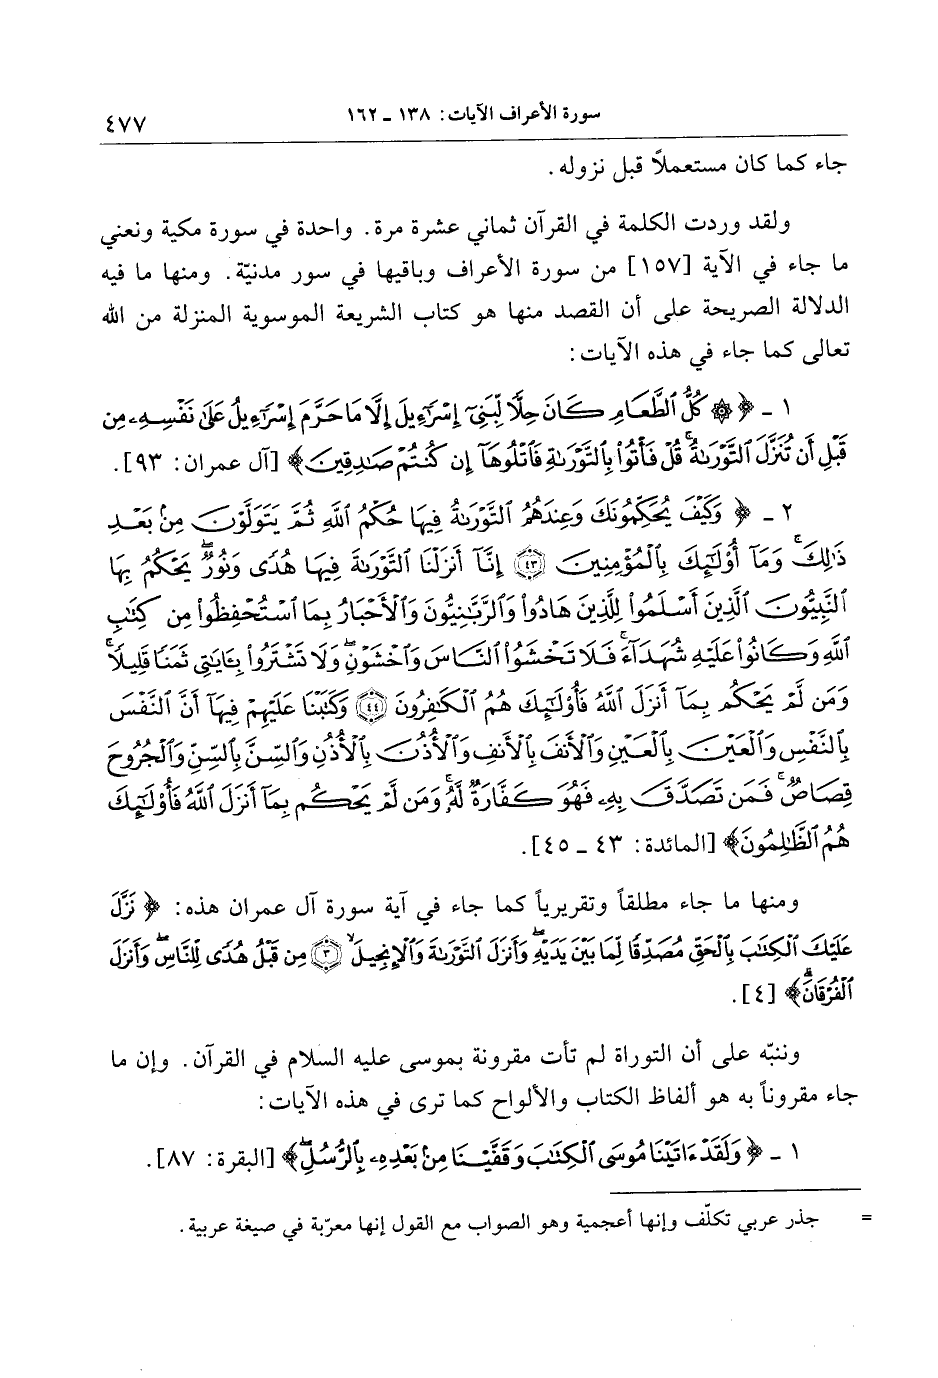 سورة الأعراف الآيات: ١٣٨ ـ ١٦٢
٤٧٧
جاء كما كان مستعملاً قبل نزوله.
ولقد وردت الكلمة في القرآن ثماني عشرة مرة. واحدة في سورة مكية ونعني
ما جاء في الآية [١٥٧] من سورة الأعراف وباقيها في سور مدنيّة. ومنها ما فيه
الدلالة الصريحة على أن القصد منها هو كتاب الشريعة الموسوية المنزلة من الله
تعالى كما جاء في هذه الآيات:
١ ـ ﴿ ۞ كُلُّ ٱلطَّعَامِ كَانَ حِلًّا لِّبَنِىٓ إِسْرَٰٓءِيلَ إِلَّا مَا حَرَّمَ إِسْرَٰٓءِيلُ عَلَىٰ نَفْسِهِۦ مِن
قَبْلِ أَن تُنَزَّلَ ٱلتَّوْرَىٰةُ ۗ قُلْ فَأْتُوا۟ بِٱلتَّوْرَىٰةِ فَٱتْلُوهَآ إِن كُنتُمْ صَٰدِقِينَ﴾ [آل عمران: ٩٣].
٢ ـ ﴿ وَكَيْفَ يُحَكِّمُونَكَ وَعِندَهُمُ ٱلتَّوْرَىٰةُ فِيهَا حُكْمُ ٱللَّهِ ثُمَّ يَتَوَلَّوْنَ مِنۢ بَعْدِ
ذَٰلِكَ ۚ وَمَآ أُو۟لَٰٓئِكَ بِٱلْمُؤْمِنِينَ ﴿٤٣﴾ إِنَّآ أَنزَلْنَا ٱلتَّوْرَىٰةَ فِيهَا هُدًى وَنُورٌ ۚ يَحْكُمُ بِهَا
ٱلنَّبِيُّونَ ٱلَّذِينَ أَسْلَمُوا۟ لِلَّذِينَ هَادُوا۟ وَٱلرَّبَّٰنِيُّونَ وَٱلْأَحْبَارُ بِمَا ٱسْتُحْفِظُوا۟ مِن كِتَٰبِ
ٱللَّهِ وَكَانُوا۟ عَلَيْهِ شُهَدَآءَ ۚ فَلَا تَخْشَوُا۟ ٱلنَّاسَ وَٱخْشَوْنِ وَلَا تَشْتَرُوا۟ بِـَٔايَٰتِى ثَمَنًا قَلِيلًا ۚ
وَمَن لَّمْ يَحْكُم بِمَآ أَنزَلَ ٱللَّهُ فَأُو۟لَٰٓئِكَ هُمُ ٱلْكَٰفِرُونَ ﴿٤٤﴾ وَكَتَبْنَا عَلَيْهِمْ فِيهَآ أَنَّ ٱلنَّفْسَ
بِٱلنَّفْسِ وَٱلْعَيْنَ بِٱلْعَيْنِ وَٱلْأَنفَ بِٱلْأَنفِ وَٱلْأُذُنَ بِٱلْأُذُنِ وَٱلسِّنَّ بِٱلسِّنِّ وَٱلْجُرُوحَ
قِصَاصٌ ۚ فَمَن تَصَدَّقَ بِهِۦ فَهُوَ كَفَّارَةٌ لَّهُۥ ۚ وَمَن لَّمْ يَحْكُم بِمَآ أَنزَلَ ٱللَّهُ فَأُو۟لَٰٓئِكَ
هُمُ ٱلظَّٰلِمُونَ﴾ [المائدة: ٤٣ ـ ٤٥].
ومنها ما جاء مطلقاً وتقريرياً كما جاء في آية سورة آل عمران هذه: ﴿ نَزَّلَ
عَلَيْكَ ٱلْكِتَٰبَ بِٱلْحَقِّ مُصَدِّقًا لِّمَا بَيْنَ يَدَيْهِ وَأَنزَلَ ٱلتَّوْرَىٰةَ وَٱلْإِنجِيلَ ﴿٣﴾ مِن قَبْلُ هُدًى لِّلنَّاسِ وَأَنزَلَ
ٱلْفُرْقَانَ ۗ﴾ [٤].
وننبّه على أن التوراة لم تأت مقرونة بموسى عليه السلام في القرآن. وإن ما
جاء مقروناً به هو ألفاظ الكتاب والألواح كما ترى في هذه الآيات:
١ ـ ﴿ وَلَقَدْ ءَاتَيْنَا مُوسَى ٱلْكِتَٰبَ وَقَفَّيْنَا مِنۢ بَعْدِهِۦ بِٱلرُّسُلِ ۖ﴾ [البقرة: ٨٧].
= جذر عربي تكلّف وإنها أعجمية وهو الصواب مع القول إنها معرّبة في صيغة عربية.